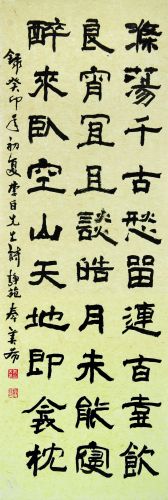 滌蕩千古愁畱連百壺飲
良宵宜且談皓月未能寢
醉來臥空山天地即衾枕
錄癸卯年初夏李白先生詩